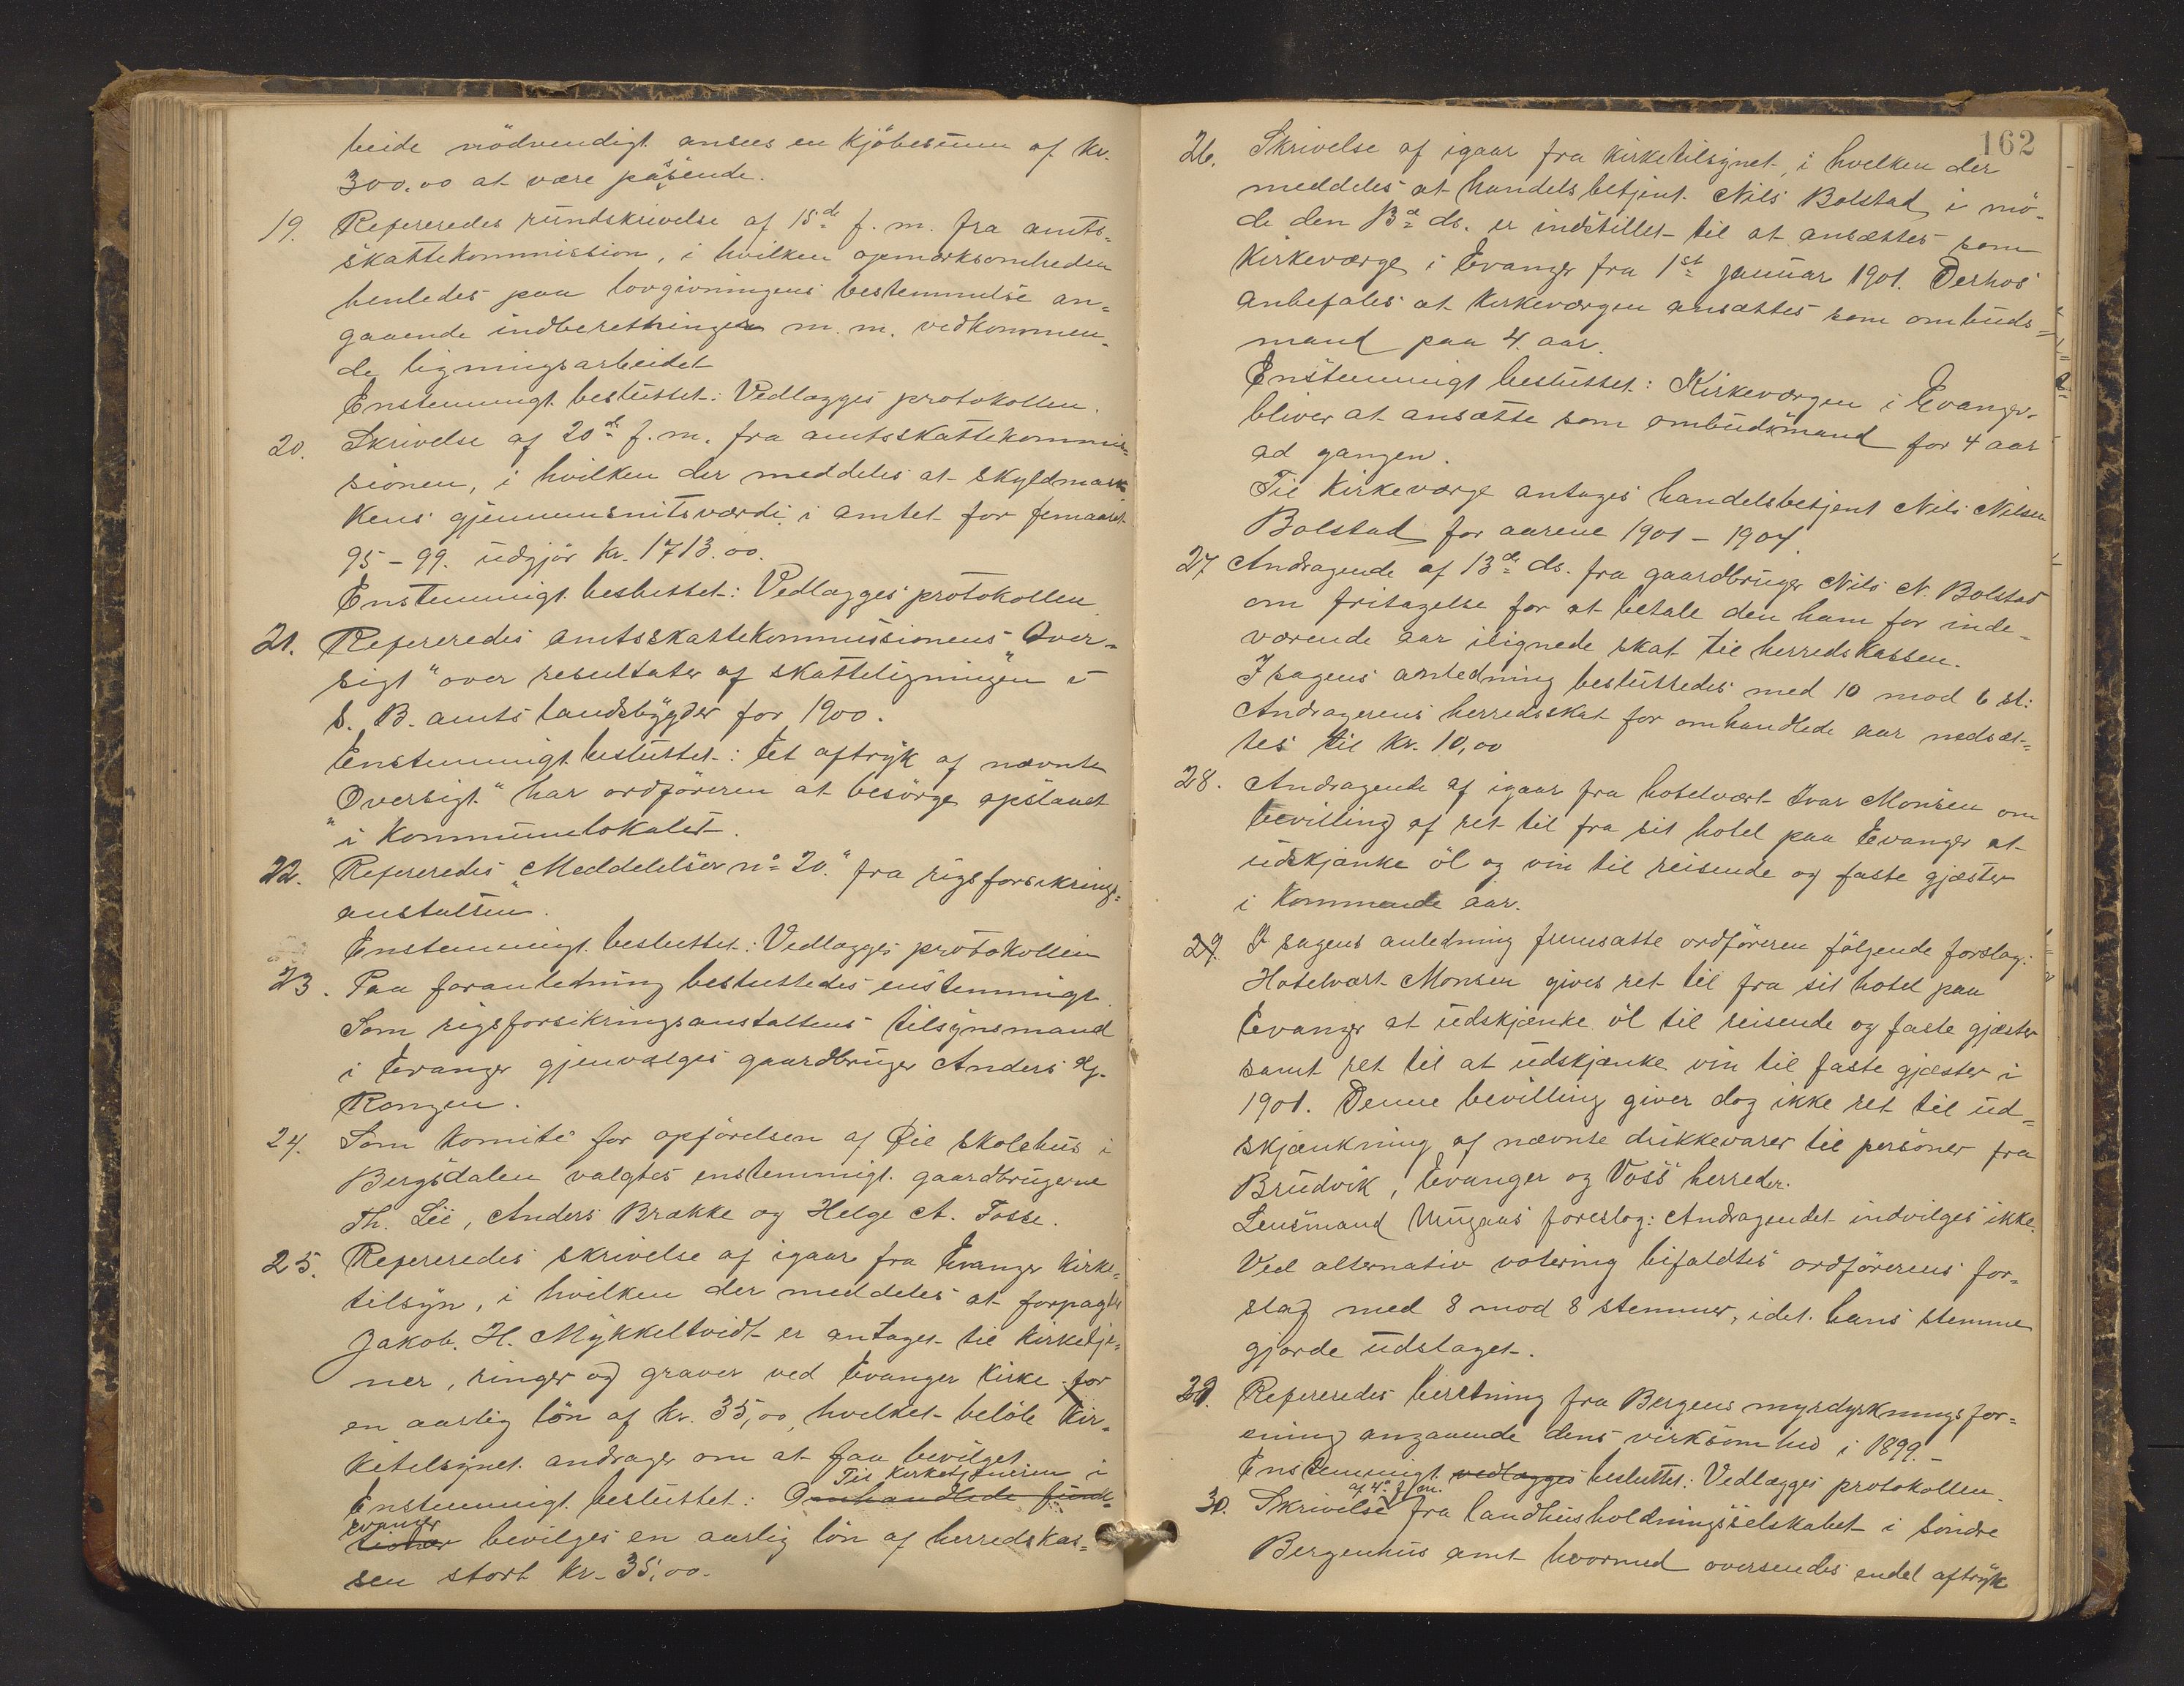 beide nödvendigt ansees en kjöbesum af kr.
300.00 at være passende.
19. Refereredes rundskrivelse af 15de f. m. fra amts-
skattekommission, i hvilken opmærksomheden
henledes paa lovgivningens bestemmelse an-
gaaende indberetninger m. m. vedkommen-
de ligningsarbeidet
Enstemmigt besluttet: Vedlægges protokollen.
20. Skrivelse af 20de f. m. fra amtsskattekommis-
sionen, i hvilken der meddeles at skyldmar-
kens gjennemsnitsværdi i amtet for femaaret
95-99. udgjör kr. 1713.00.
Enstemmigt besluttet: Vedlægges protokollen
21. Refereredes amtsskattekommissionens "Over-
sigt" over resultater af skatteligningen i
S. B. amts landsbygder for 1900.
Enstemmigt besluttet: Et aftryk af nævnte
"Oversigt" har ordföreren at besörge opslaaet
i kommunelokalet.
22. Refereredes "Meddelelser no 20." fra rigsforsikrings-
anstalten.
Enstemmigt besluttet: Vedlægges protokollen
23. Paa foranledning besluttedes enstemmigt.
Som rigsforsikringsanstaltens tilsynsmand
i Evanger gjenvælges gaardbruger Anders
Rongen.
24. Som komite for opförelsen af Øie skolehus i
Bergsdalen valgtes enstemmigt gaardbrugerne
Th. Lie, Anders Brække og Helge A. Fosse.
25. Refereredes skrivelse af igaar fra Evanger kirke-
tilsyn, i hvilken der meddeles at forpagter
Jakob. H. Mykkeltvidt er antaget til kirketje-
ner, ringer og graver ved Evanger kirke for
en aarlig lön af kr. 35,00, hvilket belöb kir-
ketilsynet andrager om at faa bevilget
Til kirketjeneren i
Enstemmigt besluttet: Omhandlede funk-
Evanger
tionær bevilges en aarlig lön af herredskas-
sen stort kr. 35.00.
162
26. Skrivelse af igaar fra kirketilsynet, i hvilken der
meddeles at handelsbetjent Nils Bolstad i mö-
de den 13de ds. er indstillet til at ansættes som
kirkeværge i Evanger fra 1st januar 1901. Derhos
anbefales at kirkeværgen ansættes som ombuds-
mand paa 4. aar.
Enstemmigt besluttet: Kirkeværgen i Evanger
bliver at ansætte som ombudsmand for 4 aar
ad gangen.
Til kirkeværge antages handelsbetjent Nils Nilsen
Bolstad for aarene 1901-1904.
27 Andragende af 13de ds. fra gaardbruger Nils N. Bolstad
om fritagelse for at betale den ham for inde-
værende aar ilignede skat til herredskassen.
I sagens anledning besluttedes med 10 mod 6 st:
Andragerens herredsskat for omhandlede aar nedsæt-
tes til kr. 10,00
28. Andragende af igaar fra hotelvært Ivar Monsen om
bevilling af ret til fra sit hotel paa Evanger at
udskjænke öl og vin til reisende og faste gjæster
i kommende aar.
29. I sagens anledning fremsatte ordföreren fölgende forslag:
Hotelvært Monsen gives ret til fra sit hotel paa
Evanger at udskjænke öl til reisende og faste gjæster
samt ret til at udskjænke vin til faste gjæster i
1901. Denne bevilling giver dog ikke ret til ud-
skjænkning af nævnte drikkevarer til personer fra
Brudvik, Evanger og Voss herreder.
Lensmand Mugaas foreslog: Andragendet indvilges ikke.
Ved alternativ votering bifaldtes ordförerens for-
slag med 8 mod 8 stemmer, idet hans stemme
gjorde udslaget.
29. Refereredes beretning fra Bergens myrdyrkningsfor-
ening angaaende dens virksomhed i 1899.-
Enstemmigt vedlægges besluttet: Vedlægges protokollen.
af 4de f. m.
30. Skrivelse fra landhusholdningsselskabet i Söndre
Bergenhus amt hvormed oversendes endel aftryk